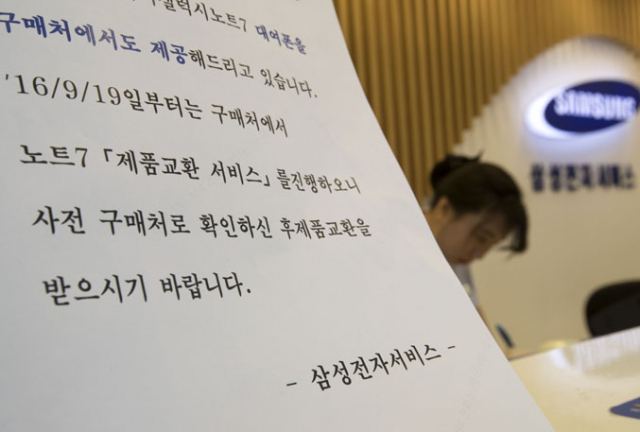 갤럭시노트7 대여폰을
구매처에서도 제공해드리고 있습니다.
'16/9/19일부터는 구매처에서
노트7 「제품교환 서비스」를진행하오니
사전 구매처로 확인하신 후제품교환을
받으시기 바랍니다.
- 삼성전자서비스 -
SAMSUNG
삼성전자서비스